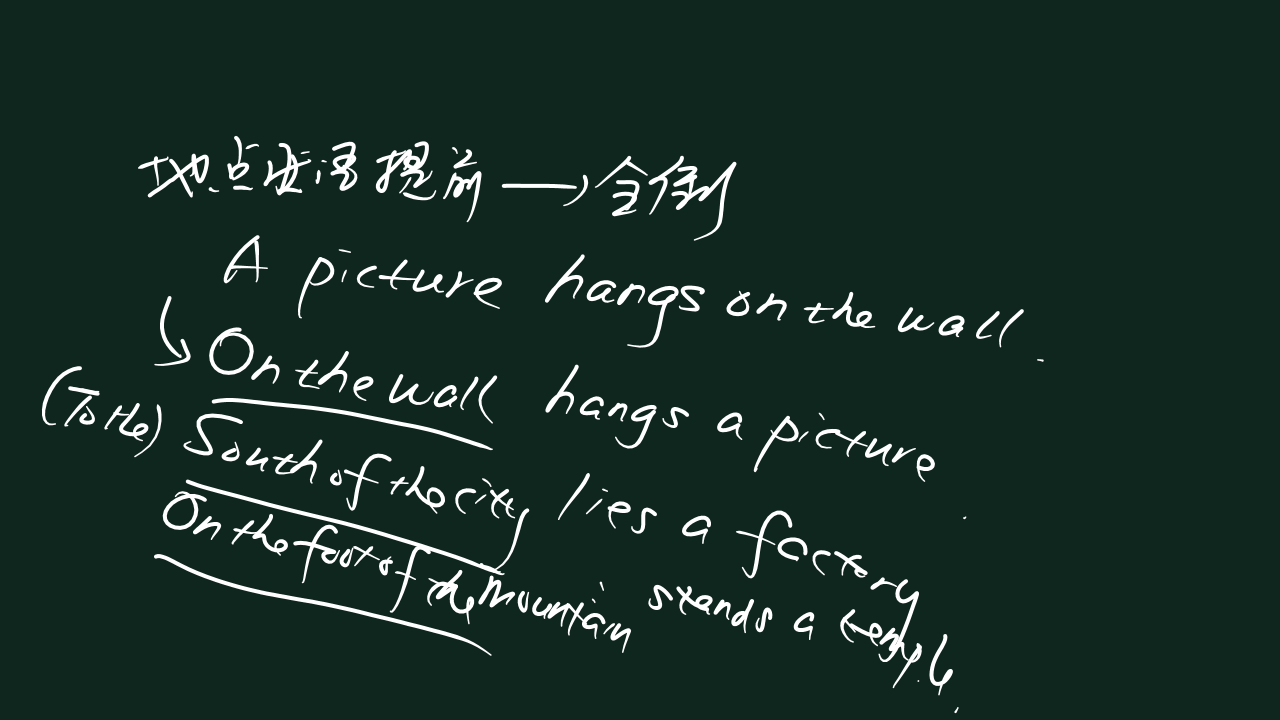 地点状语提前 → 全倒
A picture hangs on the wall.
On the wall hangs a picture.
(To the) South of the city lies a factory
On the foot of the mountain stands a temple.